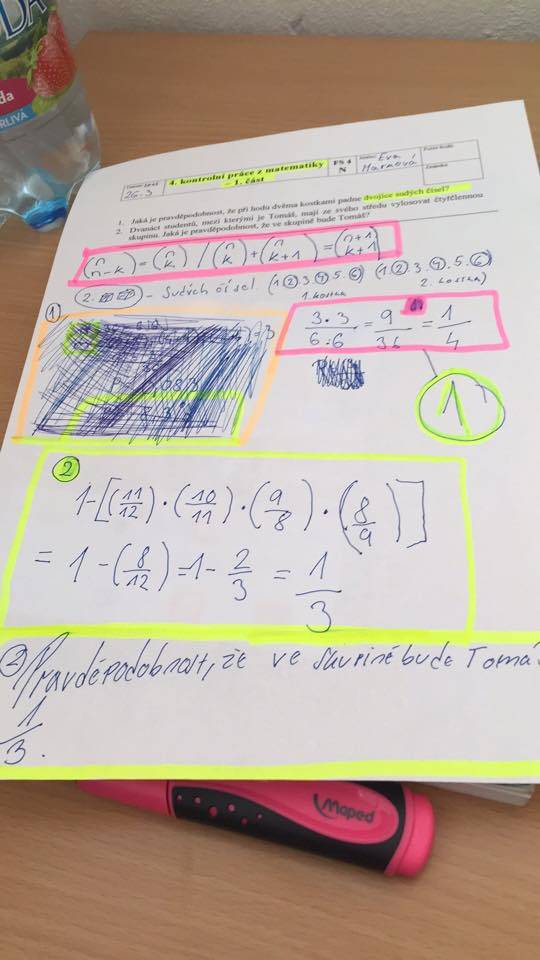 da
RLIVÁ
26.3
4. kontrolní práce z matematiky
– 1. část
FS 4
N
Eva
1. Jaká je pravděpodobnost, že při hodu dvěma kostkami padne dvojice sudých čísel?
2. Dvanáct studentů, mezi kterými je Tomáš, mají ze svého středu vylosovat čtyřčlennou
skupinu. Jaká je pravděpodobnost, že ve skupině bude Tomáš?
(n n-k) = (n k) / (n k) + (n k+1) = (n+1 k+1)
2. – Sudých čísel (1②.3.④.5.⑥) (1②.3.④.5.⑥)
1. kostka 2. kostka
①
3·3/6·6 = 9/36 = 1/4
1
②
1-[(11/12)·(10/11)·(9/8)·(8/9)]
= 1-(8/12) = 1- 2/3 = 1/3
② Pravděpodobnost, že ve skupině bude Tomáš
1/3.
Maped